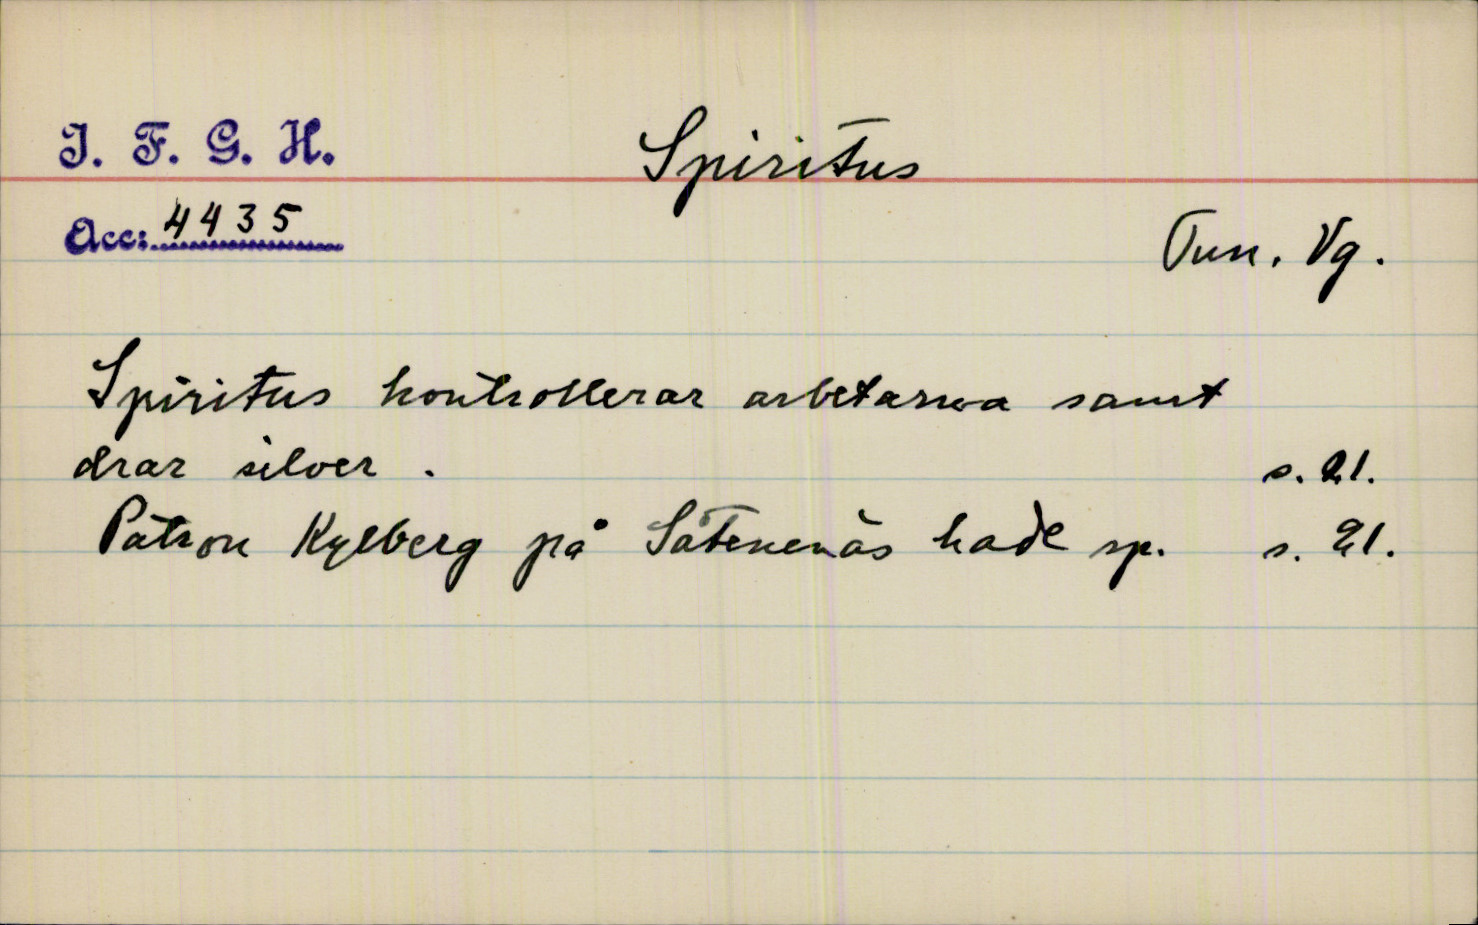 I. F. G. H.
Spiritus
Acc: 4435
Tun. Vg.
Spiritus kontrollerar arbetarna samt
drar silver. s. 21.
Patron Kylberg på Såtenäs hade sp. s. 21.